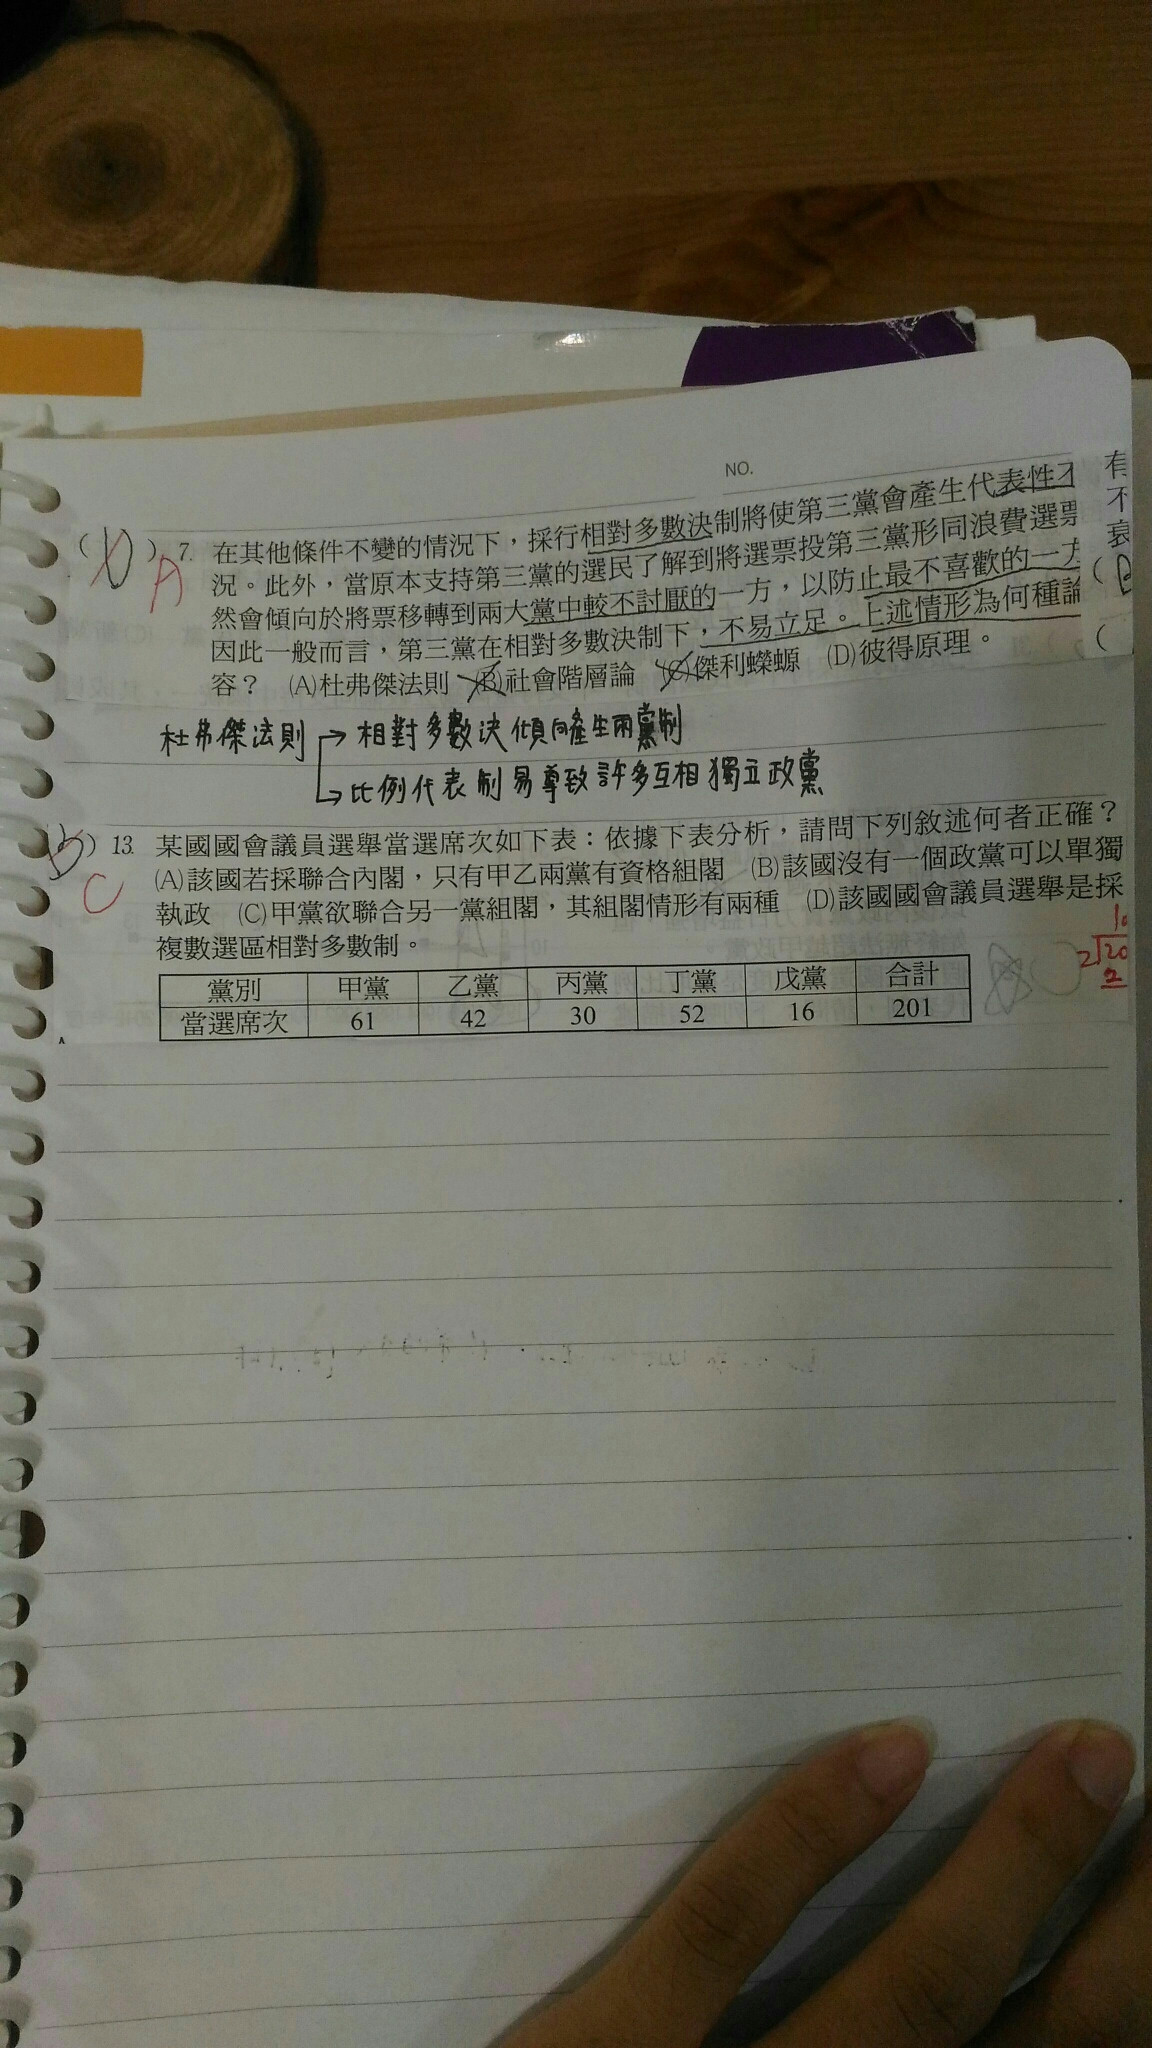 NO.
( ) 7. 在其他條件不變的情況下，採行相對多數決制將使第三黨會產生代表性不
況。此外，當原本支持第三黨的選民了解到將選票投第三黨形同浪費選票
然會傾向於將票移轉到兩大黨中較不討厭的一方，以防止最不喜歡的一方
因此一般而言，第三黨在相對多數決制下，不易立足。上述情形為何種論
容？ (A)杜弗傑法則 (B)社會階層論 (C)傑利蠑螈 (D)彼得原理。
A
有
不
衰
(B
(
杜弗傑法則 → 相對多數決傾向產生兩黨制
→ 比例代表制易導致許多互相獨立政黨
) 13. 某國國會議員選舉當選席次如下表：依據下表分析，請問下列敘述何者正確？
(A)該國若採聯合內閣，只有甲乙兩黨有資格組閣 (B)該國沒有一個政黨可以單獨
執政 (C)甲黨欲聯合另一黨組閣，其組閣情形有兩種 (D)該國國會議員選舉是採
複數選區相對多數制。
C
黨別 甲黨 乙黨 丙黨 丁黨 戊黨 合計
當選席次 61 42 30 52 16 201
10
2 20
2